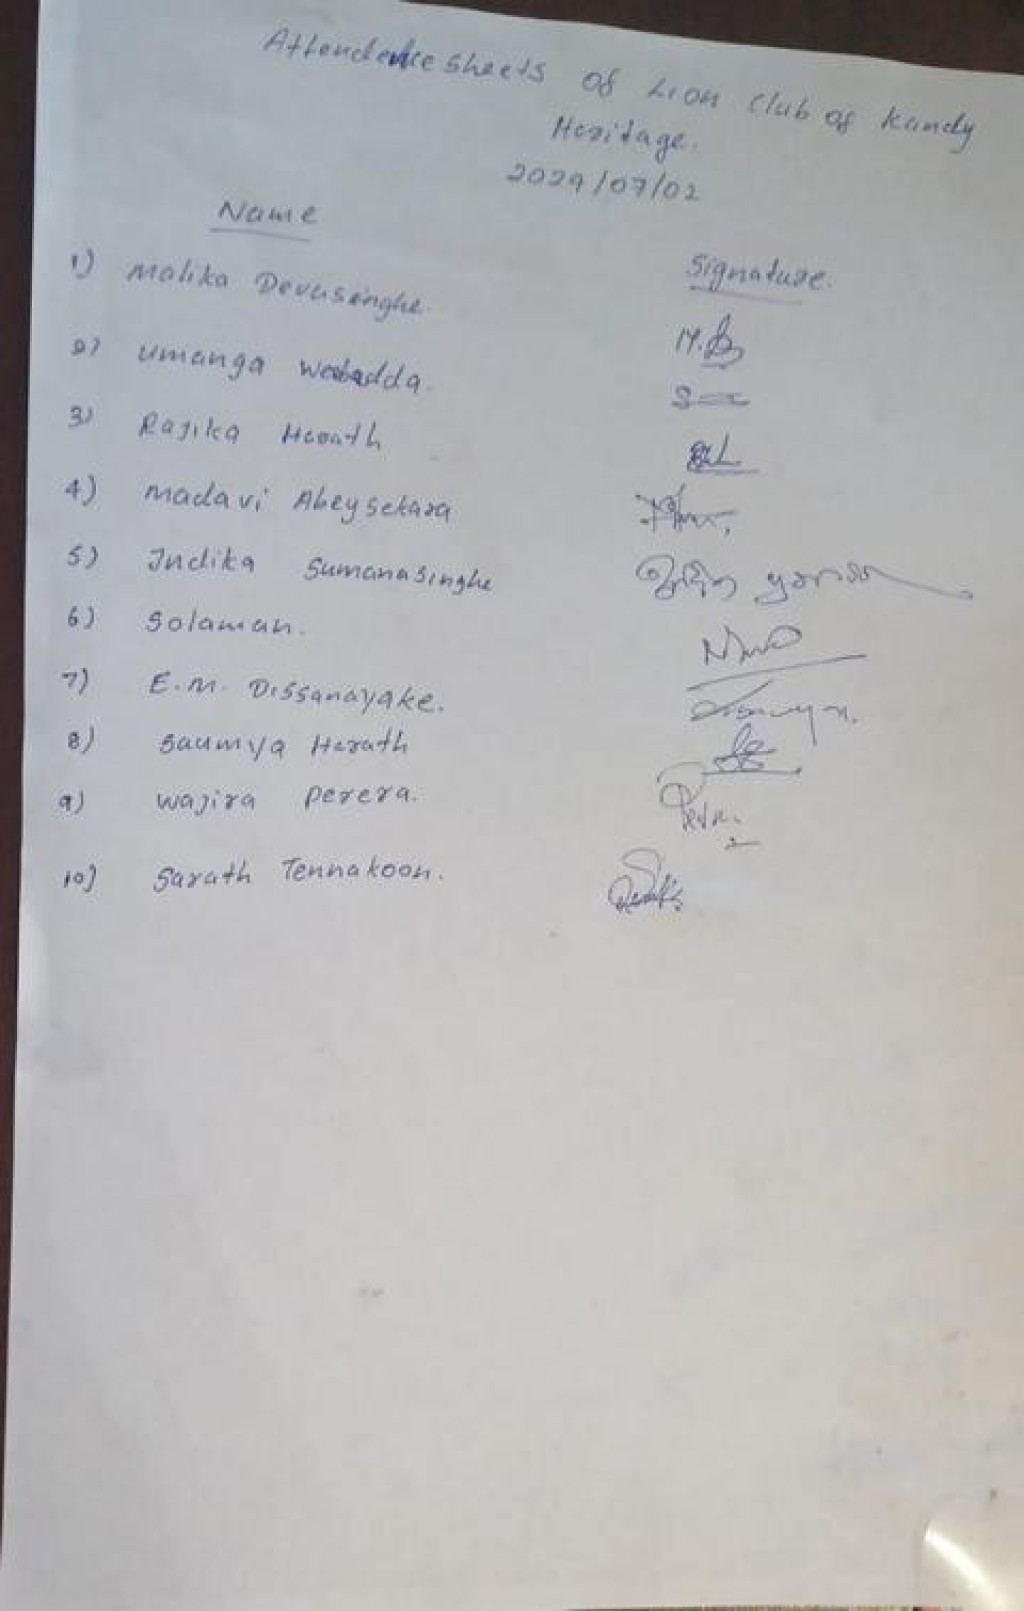 Attendence sheets of Lion Club of Kandy
Heritage.
2024/07/02
Name
Signature.
1) Malika Devasinghe.
M.
2) Umanga
3) Rajika Herath
4) Madavi Abeysekara
5) Indika Sumanasinghe
6) Solaman.
7) E.M. Dissanayake.
8) Saumya Herath
9) Wajira Perera.
10) Sarath Tennakoon.